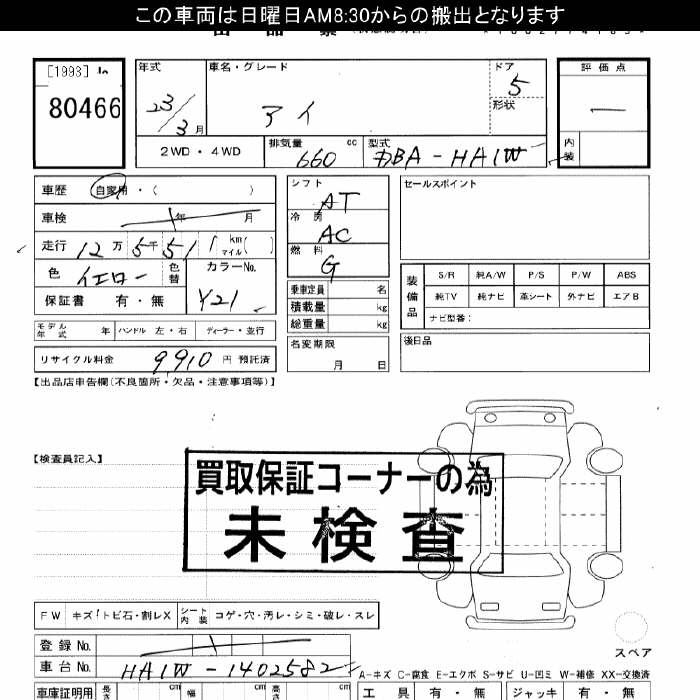 この車両は日曜日AM8:30からの搬出となります
[1993]
80466
年式
23/3月
車名・グレード
アイ
ドア
5
形状
評価点
内装
2WD・4WD
排気量
660
cc
型式
DBA-HA1W
車歴
自家用・( )
車検
年 月
走行
12万5千51
km
マイル
( )
色
イエロー
色替
カラーNo.
Y21
保証書 有・無
シフト
AT
冷房
AC
燃料
G
乗車定員 名
積載量 kg
総重量 kg
セールスポイント
装備品
S/R 純A/W P/S P/W ABS
純TV 純ナビ 革シート 外ナビ エアB
ナビ型番:
モデル年式 年 ハンドル 左・右 ディーラー・並行
リサイクル料金 9910 円 預託済
名変期限
月 日
後日品
【出品店申告欄(不良箇所・欠品・注意事項等)】
【検査員記入】
買取保証コーナーの為
未検査
FW キズ・トビ石・割レX シート内装 コゲ・穴・汚レ・シミ・破レ・スレ
スペア
登録No.
車台No. HA1W-1402582
A-キズ C-腐食 E-エクボ S-サビ U-凹ミ W-補修 XX-交換済
車庫証明用 長さ cm 幅 cm 高さ cm
工具 有・無 ジャッキ 有・無